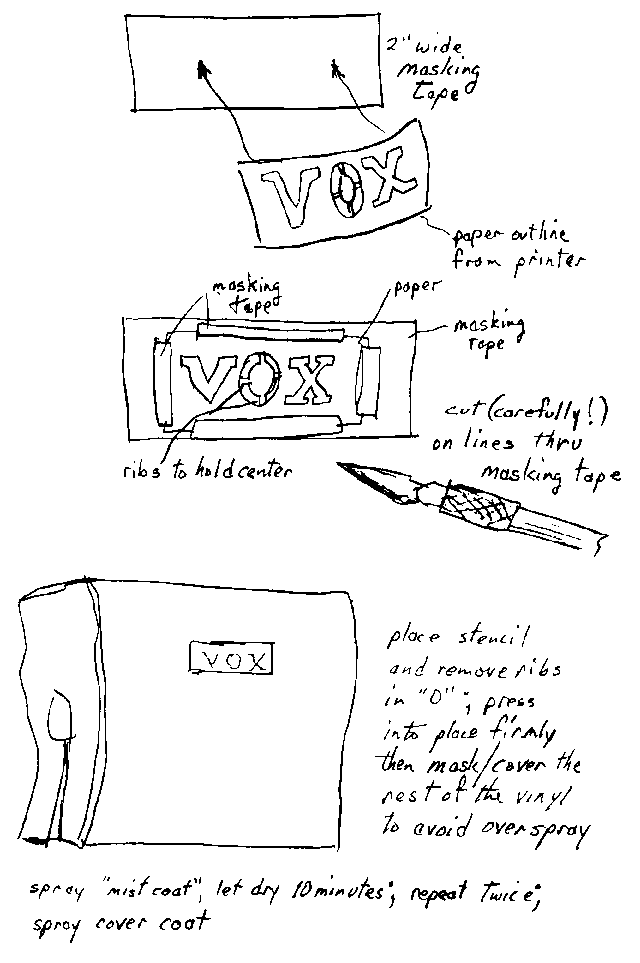 2" wide
masking
tape
VOX
paper outline
from printer
masking
tape
paper
masking
tape
VOX
cut (carefully!)
on lines thru
masking tape
ribs to hold center
VOX
place stencil
and remove ribs
in "O"; press
into place firmly
then mask/cover the
rest of the vinyl
to avoid overspray
spray "mist coat", let dry 10 minutes; repeat twice;
spray cover coat